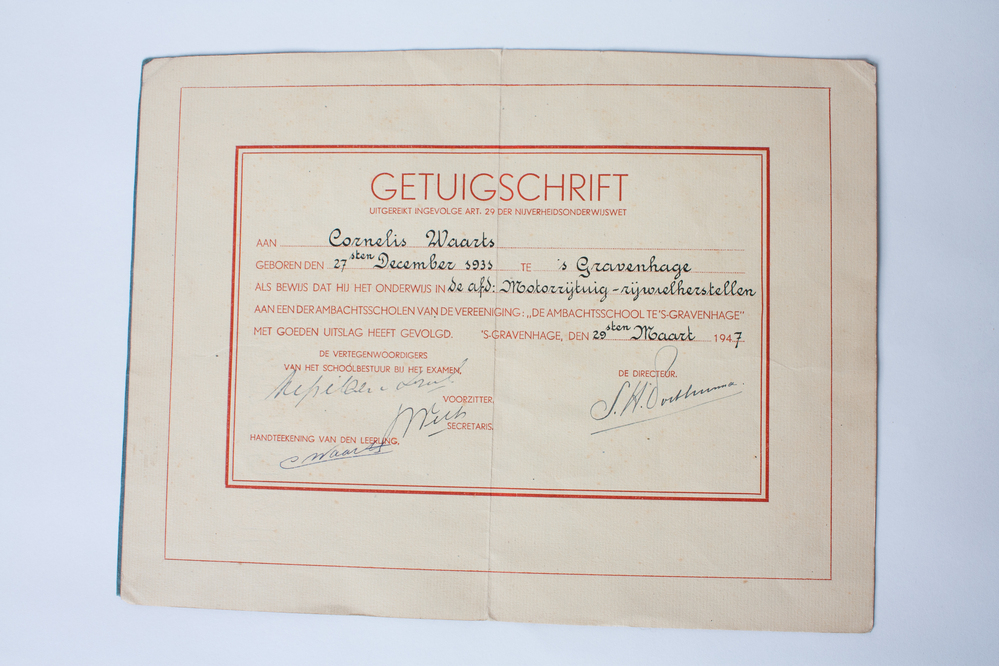 GETUIGSCHRIFT
UITGEREIKT INGEVOLGE ART. 29 DER NIJVERHEIDSONDERWIJSWET
AAN Cornelis Waarts
GEBOREN DEN 27sten December 1931 TE 's Gravenhage
ALS BEWIJS DAT HIJ HET ONDERWIJS IN de afd: Motorrijtuig-rijwielherstellen
AAN EEN DER AMBACHTSSCHOLEN VAN DE VEREENIGING: „DE AMBACHTSSCHOOL TE 'S-GRAVENHAGE"
MET GOEDEN UITSLAG HEEFT GEVOLGD. 'S-GRAVENHAGE, DEN 29sten Maart 1947.
DE VERTEGENWOORDIGERS
VAN HET SCHOOLBESTUUR BIJ HET EXAMEN,
VOORZITTER.
SECRETARIS.
HANDTEEKENING VAN DEN LEERLING,
C Waarts
DE DIRECTEUR.